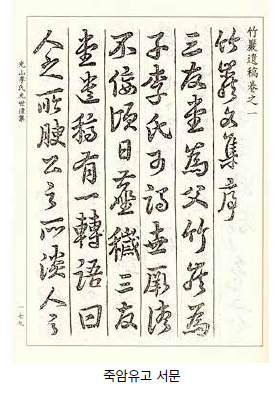 竹巖遺稿卷之一
竹巖文集序
三友堂爲父竹巖爲
子李氏可謂世厥
不佞頃日蕪穢三友
堂遺稿有一轉語曰
人之所腴公之所淡人之
光山李氏九世遺集
一七九
죽암유고 서문